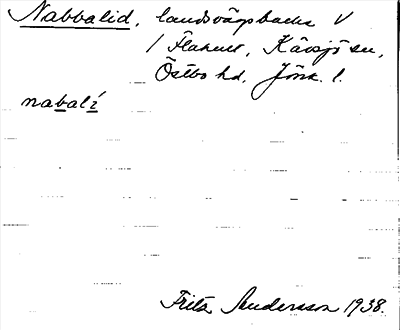 Nabbalid, landsvägsbacke V
/ Flahult, Kävsjö sn,
Östbo hd, Jönk. l.
nabalí
Frits Andersson 1938.